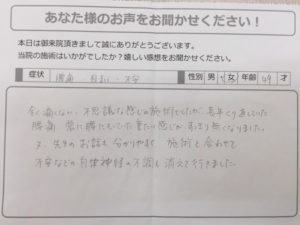 あなた様のお声をお聞かせください！
本日は御来院頂きまして誠にありがとうございます。
当院の施術はいかがでしたか？嬉しい感想をお聞かせください。
症状 腰痛・めまい・不安 性別 男・女 年齢 49 才
全く痛くない、不思議な感じの施術でしたが、長年くり返していた
腰痛、常に腰にもっていた重たい感じがすっきり無くなりました。
又、先生のお話も分かりやすく 施術と合わせて
不安などの自律神経の不調も消えて行きました。